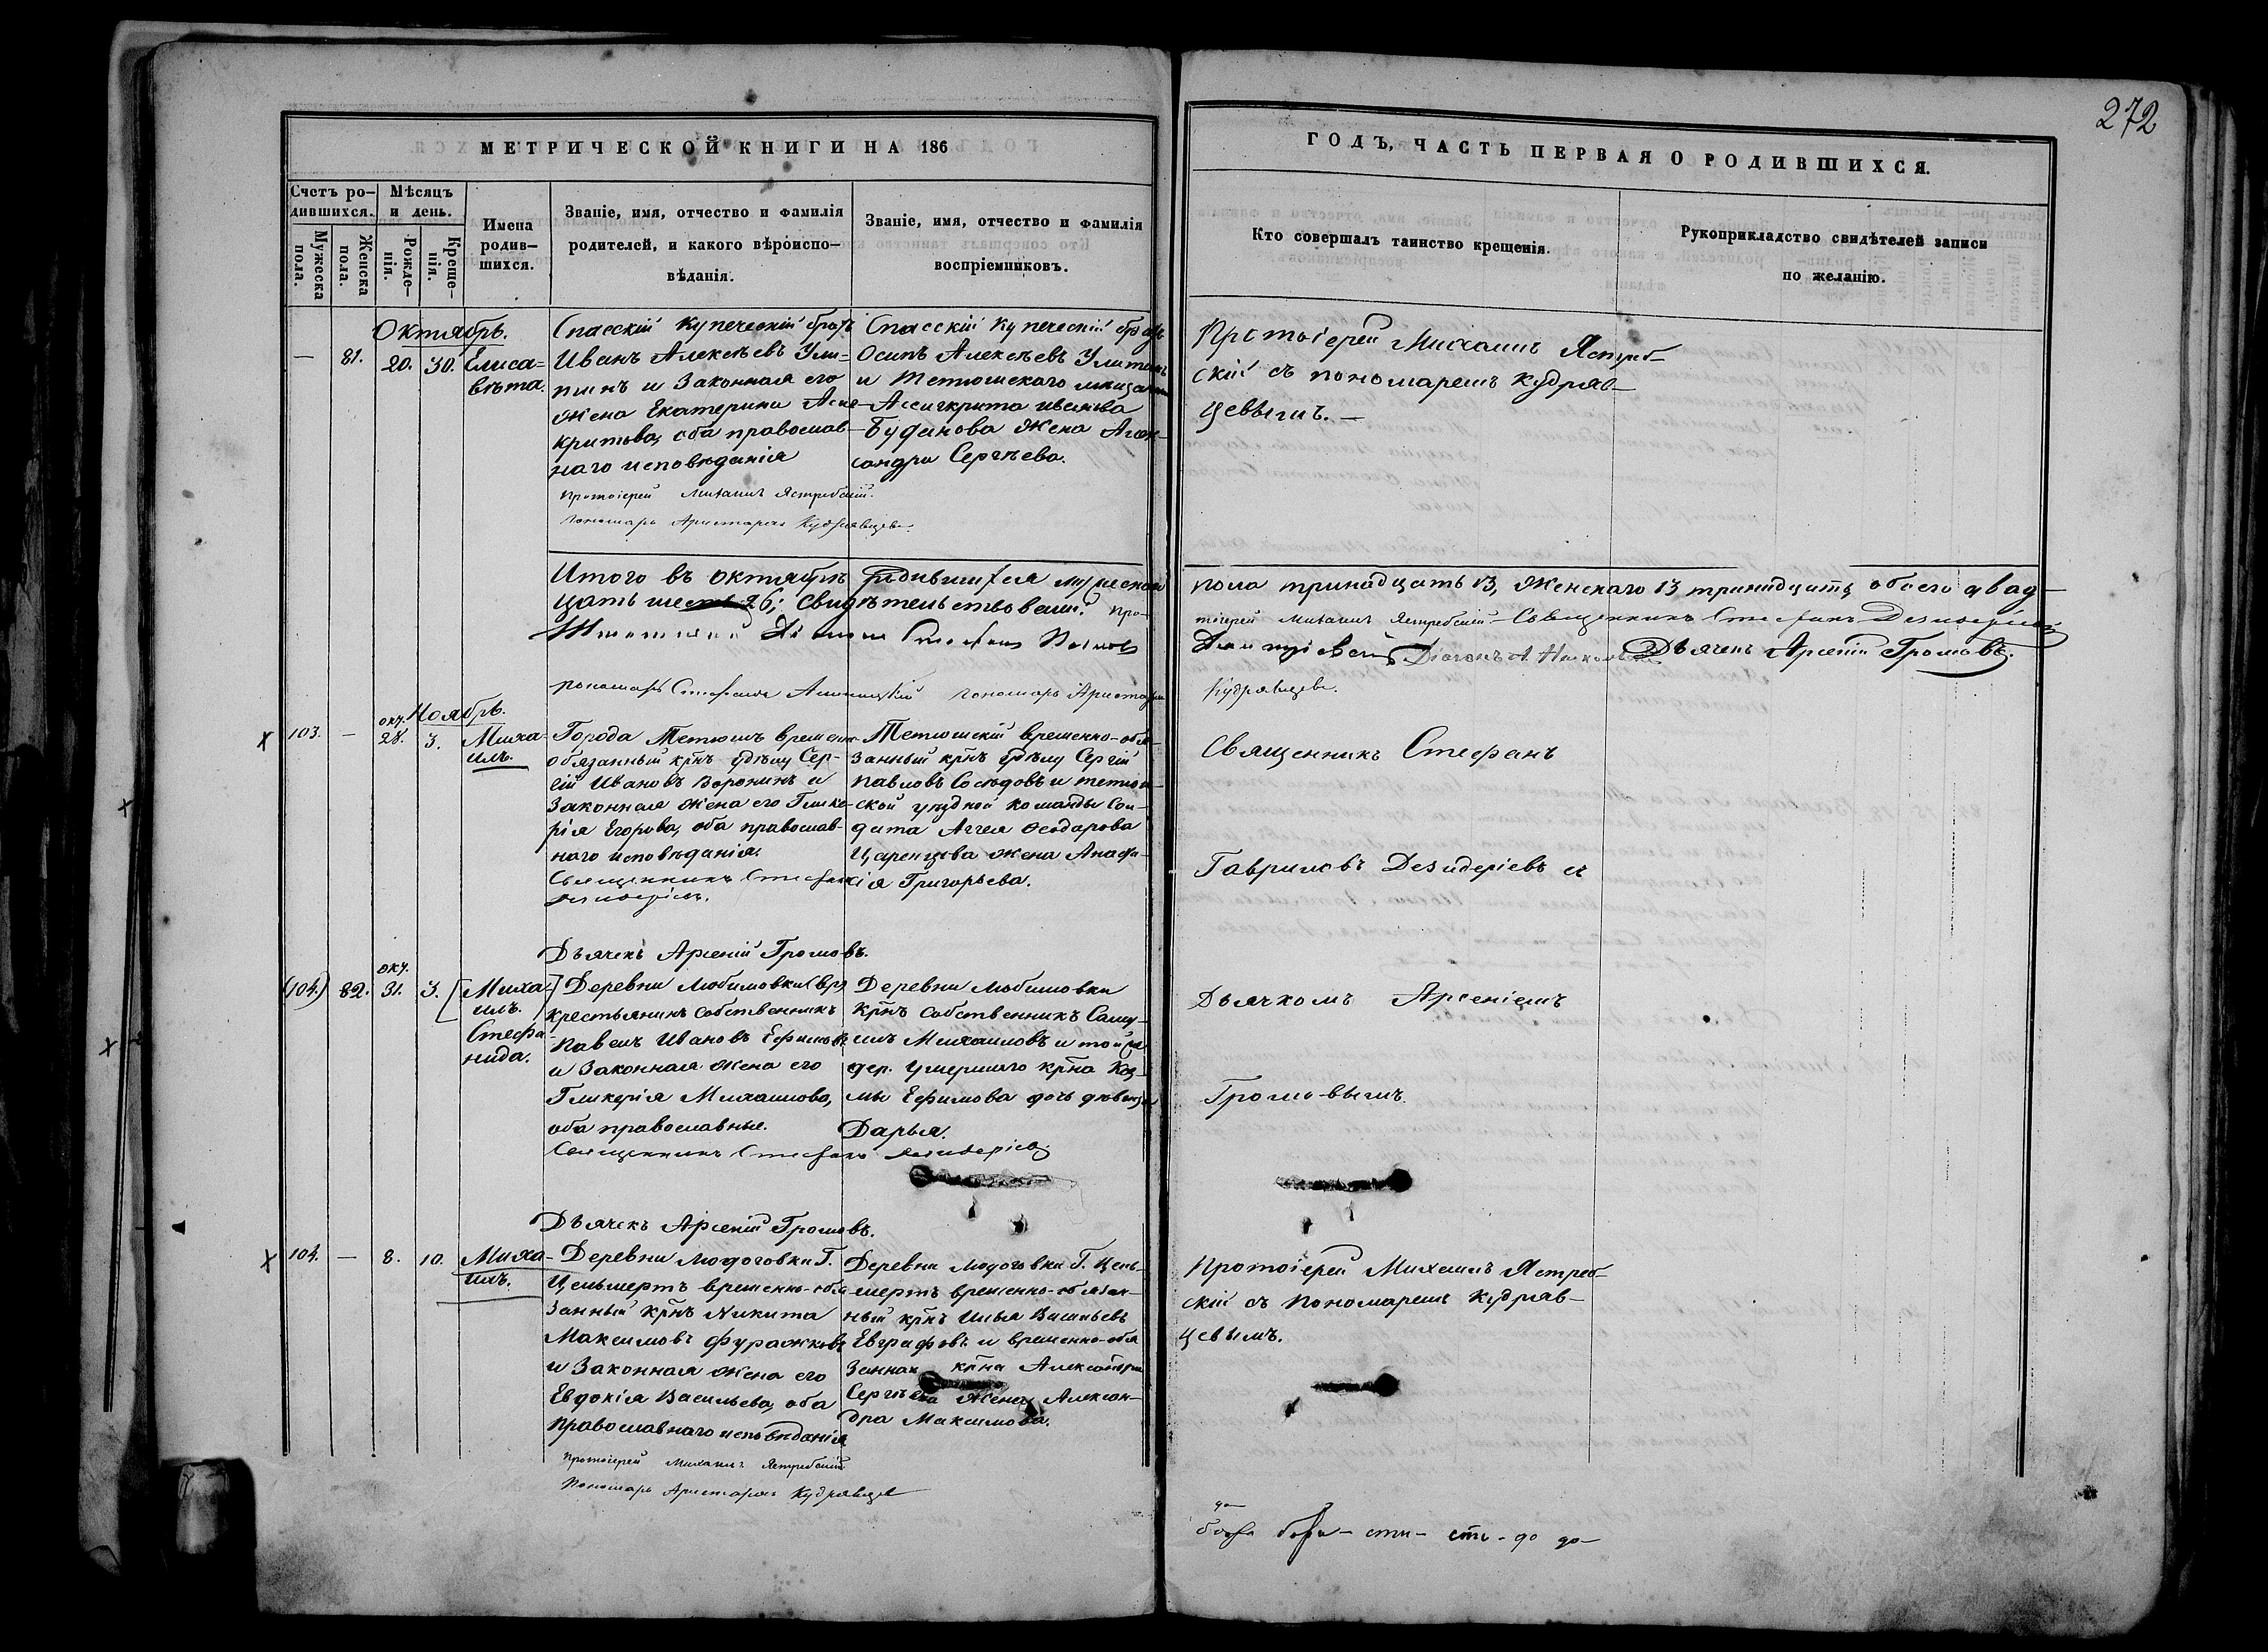 272
МЕТРИЧЕСКОЙ КНИГИ НА 186
ГОДЪ, ЧАСТЬ ПЕРВАЯ О РОДИВШИХСЯ.
Счетъ ро-
дившихся.
Мужеска
пола.
Женска
пола.
Мѣсяцъ
и день.
Рожде-
нія.
Креще-
нія.
Имена
родив-
шихся.
Званіе, имя, отчество и фамилія
родителей, и какого вѣроиспо-
вѣданія.
Званіе, имя, отчество и фамилія
воспріемниковъ.
Кто совершалъ таинство крещенія.
Рукоприкладство свидѣтелей записи
по желанію.
Октябрь.
— 81. 20. 30. Елиса-
вѣта.
Спасскій купеческій братъ
Иванъ Алексѣевъ Ули-
тинъ и законная его
жена Екатерина Асиг-
критова, оба православ-
наго исповѣданія
Протоіерей Михаилъ Ястребскій.
Пономарь Аристархъ Кудрявцевъ.
Спасскій купеческій братъ
Осипъ Алексѣевъ Улитинъ
и Тетюшскаго мѣщанина
Ассигкрита Иванова
Буданова жена Алек-
сандра Сергѣева.
Протоіерей Михаилъ Ястреб-
скій съ пономаремъ Кудряв-
цевымъ. —
Итого въ октябрѣ родившихся мужескаго
пола тринадцать 13, женскаго 13 тринадцать, обоего двад-
цать шесть 26; свидѣтельствовали: Про-
тоіерей Михаилъ Ястребскій Священникъ Стефанъ Дезидеріевъ
Діаконъ А. Дьячекъ Арсеній Громовъ.
Пономарь Стефанъ Пономарь Аристархъ
Кудрявцевъ.
Ноябрь.
103. — окт. 28. 3. Миха-
илъ.
Города Тетюшъ временно-
обязанный крнъ удѣлу Сер-
гій Ивановъ Воронинъ и
законная жена его Глике-
рія Егорова, оба православ-
наго исповѣданія.
Священникъ Стефанъ
Дезидеріевъ.
Дьячекъ Арсеній Громовъ.
Тетюшскій временно-обя-
занный крнъ удѣлу Сергій
Павловъ Сосѣдовъ и тетюш-
ской уѣздной команды сол-
дата Аггея Ѳеодорова
Царенцова жена Анафи-
кія Григорьева.
Священникъ Стефанъ
Гавриловъ Дезидеріевъ съ
Дьячкомъ Арсеніемъ
Громовымъ.
(104.) 82. окт. 31. 3. [Миха-
илъ.]
Стефа-
нида.
Деревни Любимовки (вр)
крестьянинъ собственникъ
Павелъ Ивановъ Ефимовъ
и законная жена его
Гликерія Михаилова,
оба православные.
Священникъ Стефанъ Дезидеріевъ
Дьячекъ Арсеній Громовъ.
Деревни Любимовки
крнъ собственникъ Саму-
илъ Михаиловъ и той же
дер. умершаго крна Коз-
мы Ефимова дочь дѣвица
Дарья.
104. — 8. 10. Миха-
илъ.
Деревни Людоговки Г.
Цельмертъ временно-обя-
занный крнъ Никита
Максимовъ Фуражковъ
и законная жена его
Евдокія Васильева, оба
православнаго исповѣданія
Протоіерей Михаилъ Ястребскій
Пономарь Аристархъ Кудрявцевъ
Деревни Людоговки Г. Цель-
мертъ временно-обязан-
ный крнъ Илья Васильевъ
Евграфовъ и временно-обя-
занная крна Александра
Сергѣева жена Алексан-
дра Максимова.
Протоіерей Михаилъ Ястреб-
скій съ пономаремъ Кудряв-
цевымъ.
сти - сть - до до -